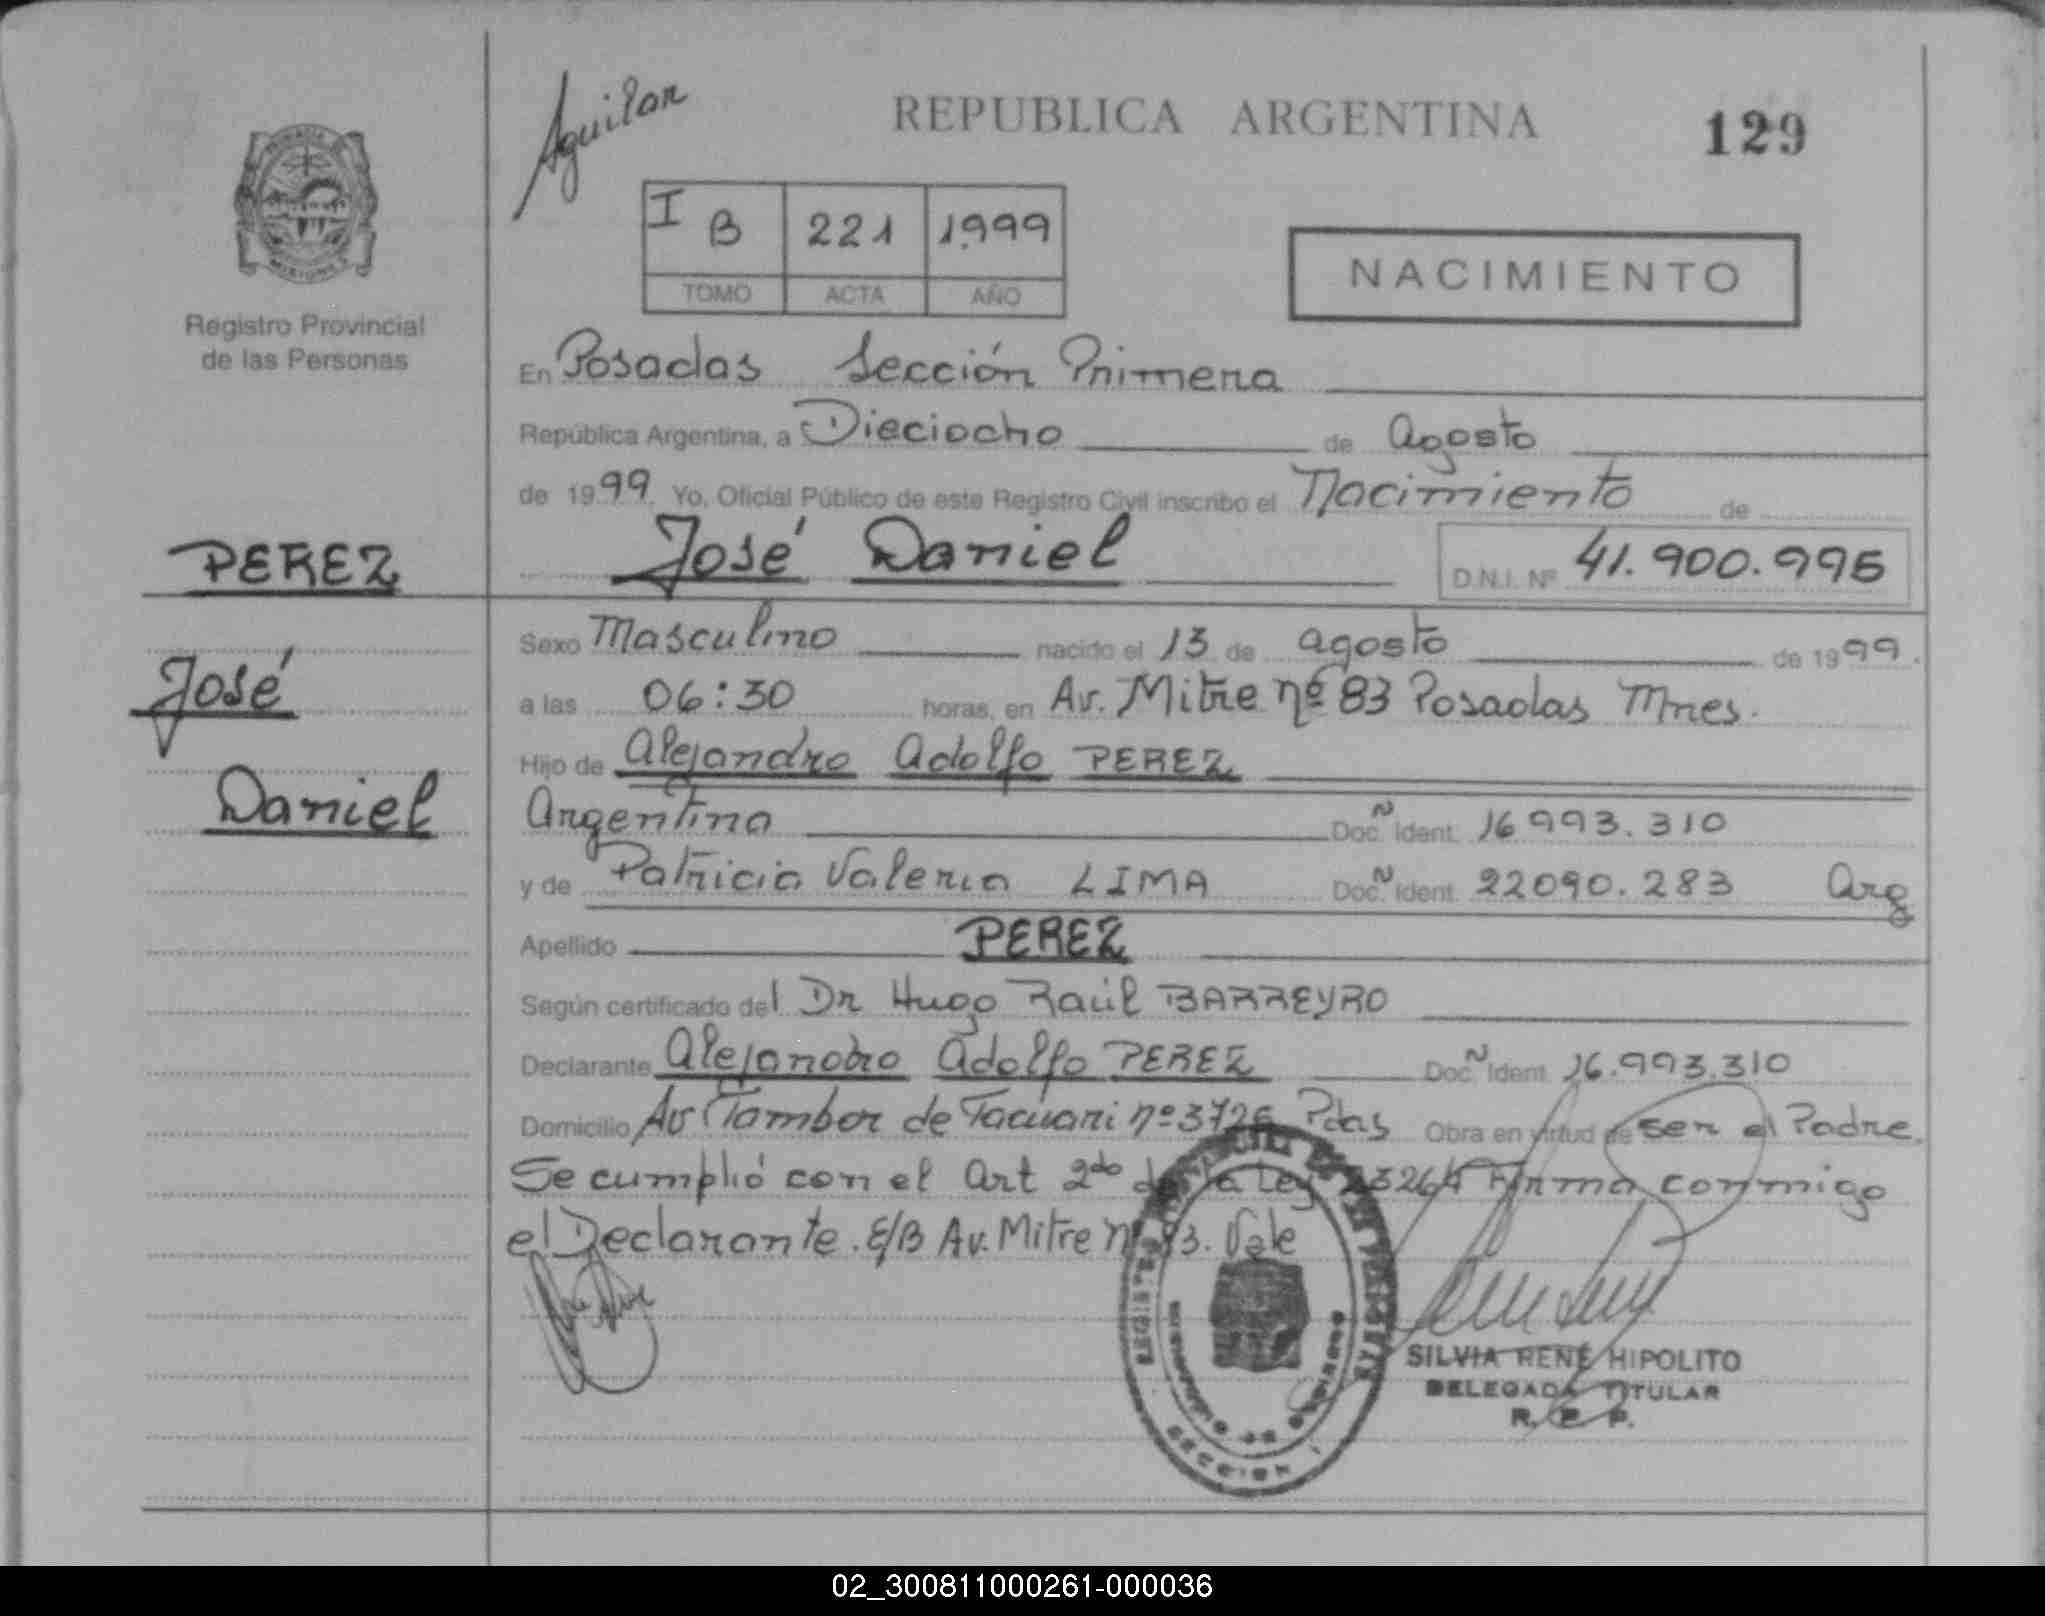 Aguilar
REPUBLICA ARGENTINA
129
I B 221 1999
TOMO ACTA AÑO
NACIMIENTO
MISIONES
Registro Provincial
de las Personas
En Posadas Sección Primera
República Argentina, a Dieciocho de Agosto
de 1999. Yo, Oficial Público de este Registro Civil inscribo el Nacimiento de
PEREZ
José Daniel
D.N.I. Nº 41.900.995
Sexo Masculino nacido el 13 de agosto de 1999.
José
a las 06:30 horas, en Av. Mitre nº 83 Posadas Mnes.
Hijo de Alejandro Adolfo PEREZ
Daniel
Argentino Doc. Ident. 16993.310
y de Patricia Valeria LIMA Doc. Ident. 22090.283 Arg
Apellido PEREZ
Según certificado del Dr Hugo Raúl BARREYRO
Declarante Alejandro Adolfo PEREZ Doc. Ident. 16.993.310
Domicilio Av Tambor de Tacuari nº 3726 Pdas Obra en virtud de ser el Padre.
Se cumplió con el Art 2do de la Ley 23264 Firma conmigo
el Declarante. E/B Av. Mitre nº 83. Vale
SILVIA RENE HIPOLITO
DELEGADA TITULAR
R. P. P.
SECCION 1
02_300811000261-000036